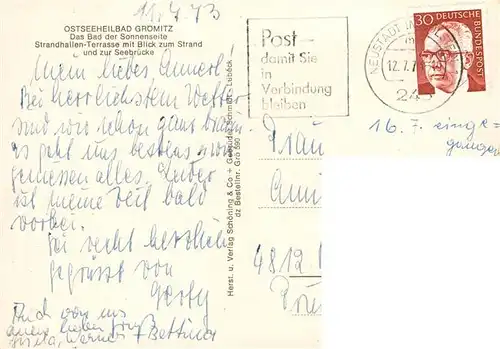 11.7.73
OSTSEEHEILBAD GRÖMITZ
Das Bad der Sonnenseite
Strandhallen-Terrasse mit Blick zum Strand
und zur Seebrücke
Mein liebes Annerl!
Bei herrlichstem Wetter
sind wir schon ganz braun.
Es geht uns bestens u. wir
genießen alles. Leider
ist meine Zeit bald
vorbei.
Sei recht herzlich
gegrüßt von
Gerty
Auch von uns
einen lieben Gruß
Werner + Bettina
Herst. u. Verlag Schöning & Co + Gebrüder Schmidt - Lübeck
dz Bestellnr. Grö 590
Post –
damit Sie
in
Verbindung
bleiben
NEUSTADT
12.7.7
243
30
DEUTSCHE
BUNDESPOST
16.7. einge-
gangen
Frau
4812